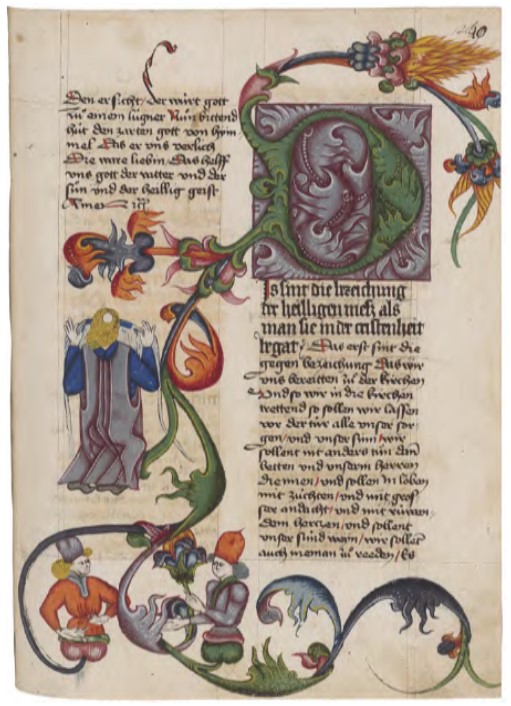 240
Den er sicht / der würt gott
zů einem lugner Nun bittend
hüt den zarten gott von hym
mel Das er vns verlich
Die ware liebin / Das helff
vns gott der vatter vnd der
sun vnd der heillig geist
Amen
Dis sint die bezeichung
der heilligen meß als
man sie in der cristenheit
begat / Das erst sint die
gegen bezaichung Das wir
vns bereitten zů der kirchen
vnd so wir in die kirchen
trettend so sollen wir lassen
vor der tür alle vnser sor
gen / vnd vnser sinn / wir
sollent nit anders tůn dan
betten vnd vnserm herren
dienen / vnd sollen in loben
mit züchten / vnd mit gros
ser andacht / vnd mit
dem hertzen / vnd sollent
vnser sünd / wir sollen
auch nieman zů reden / Es